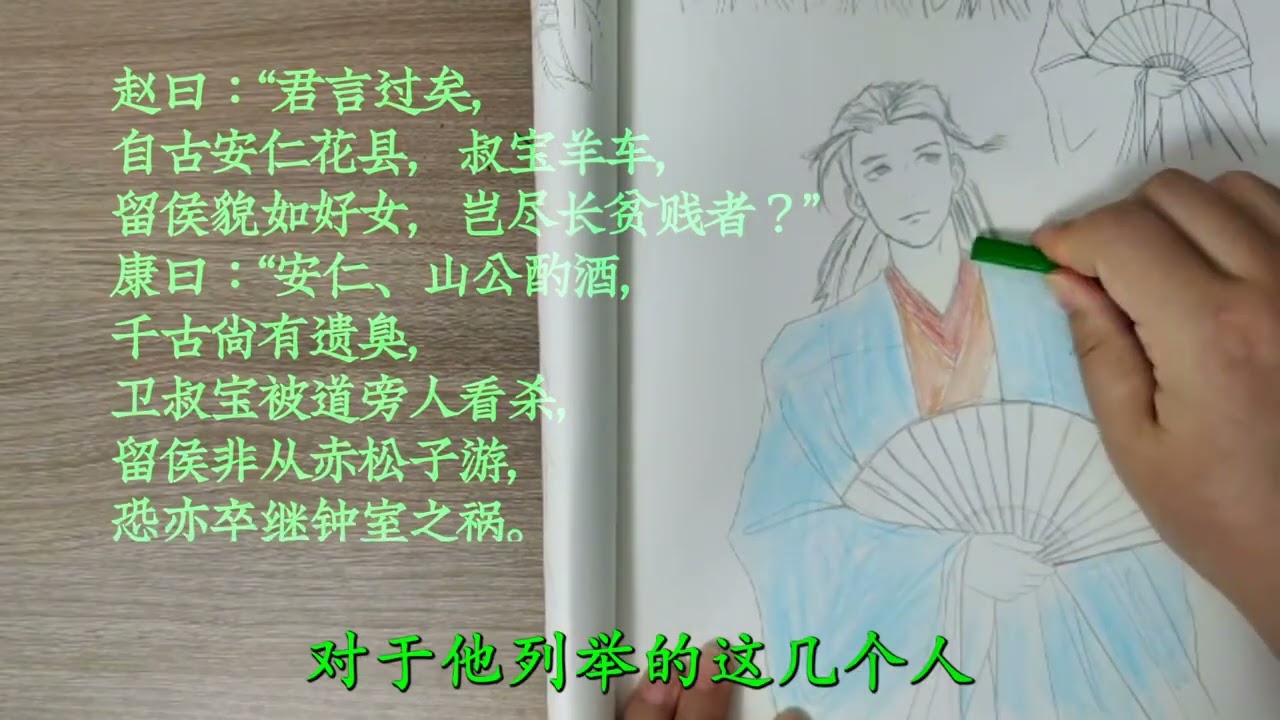 赵曰：“君言过矣，
自古安仁花县，叔宝羊车，
留侯貌如好女，岂尽长贫贱者？”
康曰：“安仁、山公酌酒，
千古尚有遗臭，
卫叔宝被道旁人看杀，
留侯非从赤松子游，
恐亦卒继钟室之祸。
对于他列举的这几个人